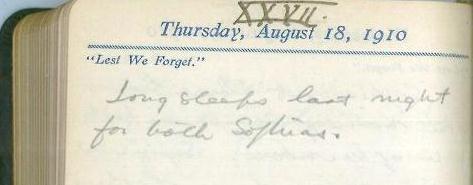 XXVII.
Thursday, August 18, 1910
"Lest We Forget."
Long sleeps last night
for both Sophias.